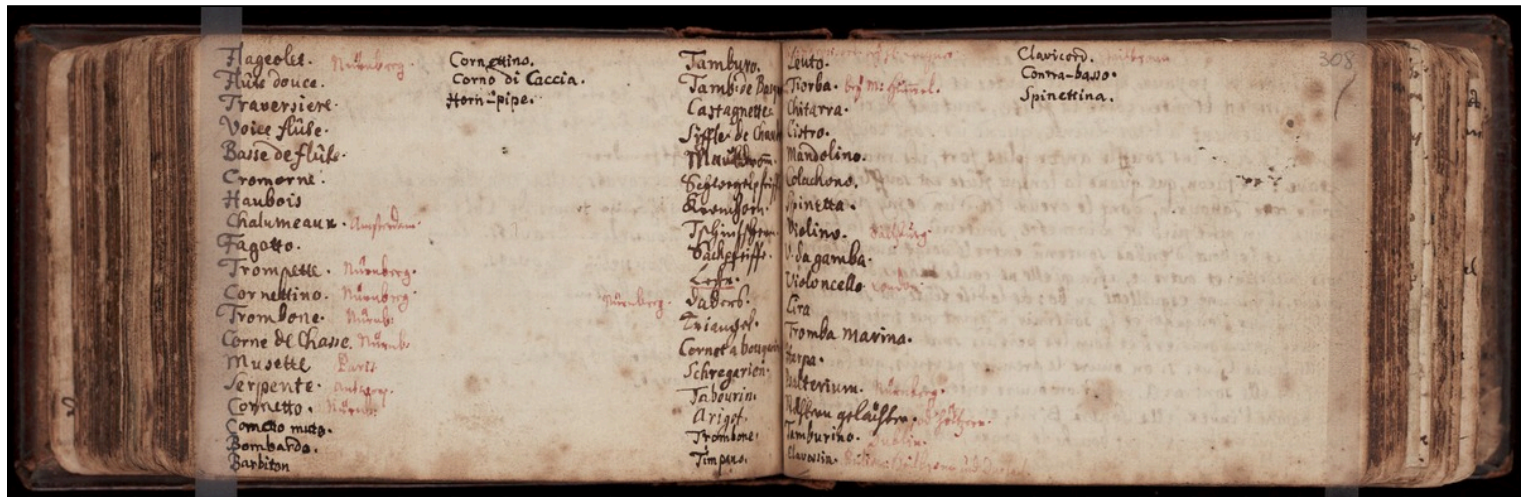 Flageolet. Nürnberg.
Flûte douce.
Traversiere.
Voice flûte.
Basse de flûte.
Cromorne.
Haubois
Chalumeaux. Amsterdam.
Fagotto.
Trompette. Nürnberg.
Cornettino. Nürnberg.
Trombone. Nürnb:
Corne de Chasse. Nürnb:
Musette Paris
Serpente. Antwerp.
Cornetto. Nürnb:
Cornetto muto.
Bombardo.
Barbiton
Cornettino.
Corno di Caccia.
Horn-pipe.
Tamburo.
Tamb: de
Castagnette.
Syffle de
Schwegelpfeiff
Krumhorn.
Sackpfeiffe.
Nürnberg.
Triangel.
Cornet a bouquin
Schregarien.
Tabourin.
Arigot.
Trombone.
Timpano.
Leuto.
Tiorba.
Chitarra.
Cistro.
Mandolino.
Colachono.
Spinetta.
Violino.
V. da gamba.
Violoncello London.
Lira
Tromba marina.
Harpa.
Psalterium. Nürnberg.
Tamburino. Dublin.
Clavessin.
Clavicord.
Contra-basso.
Spinettina.
308